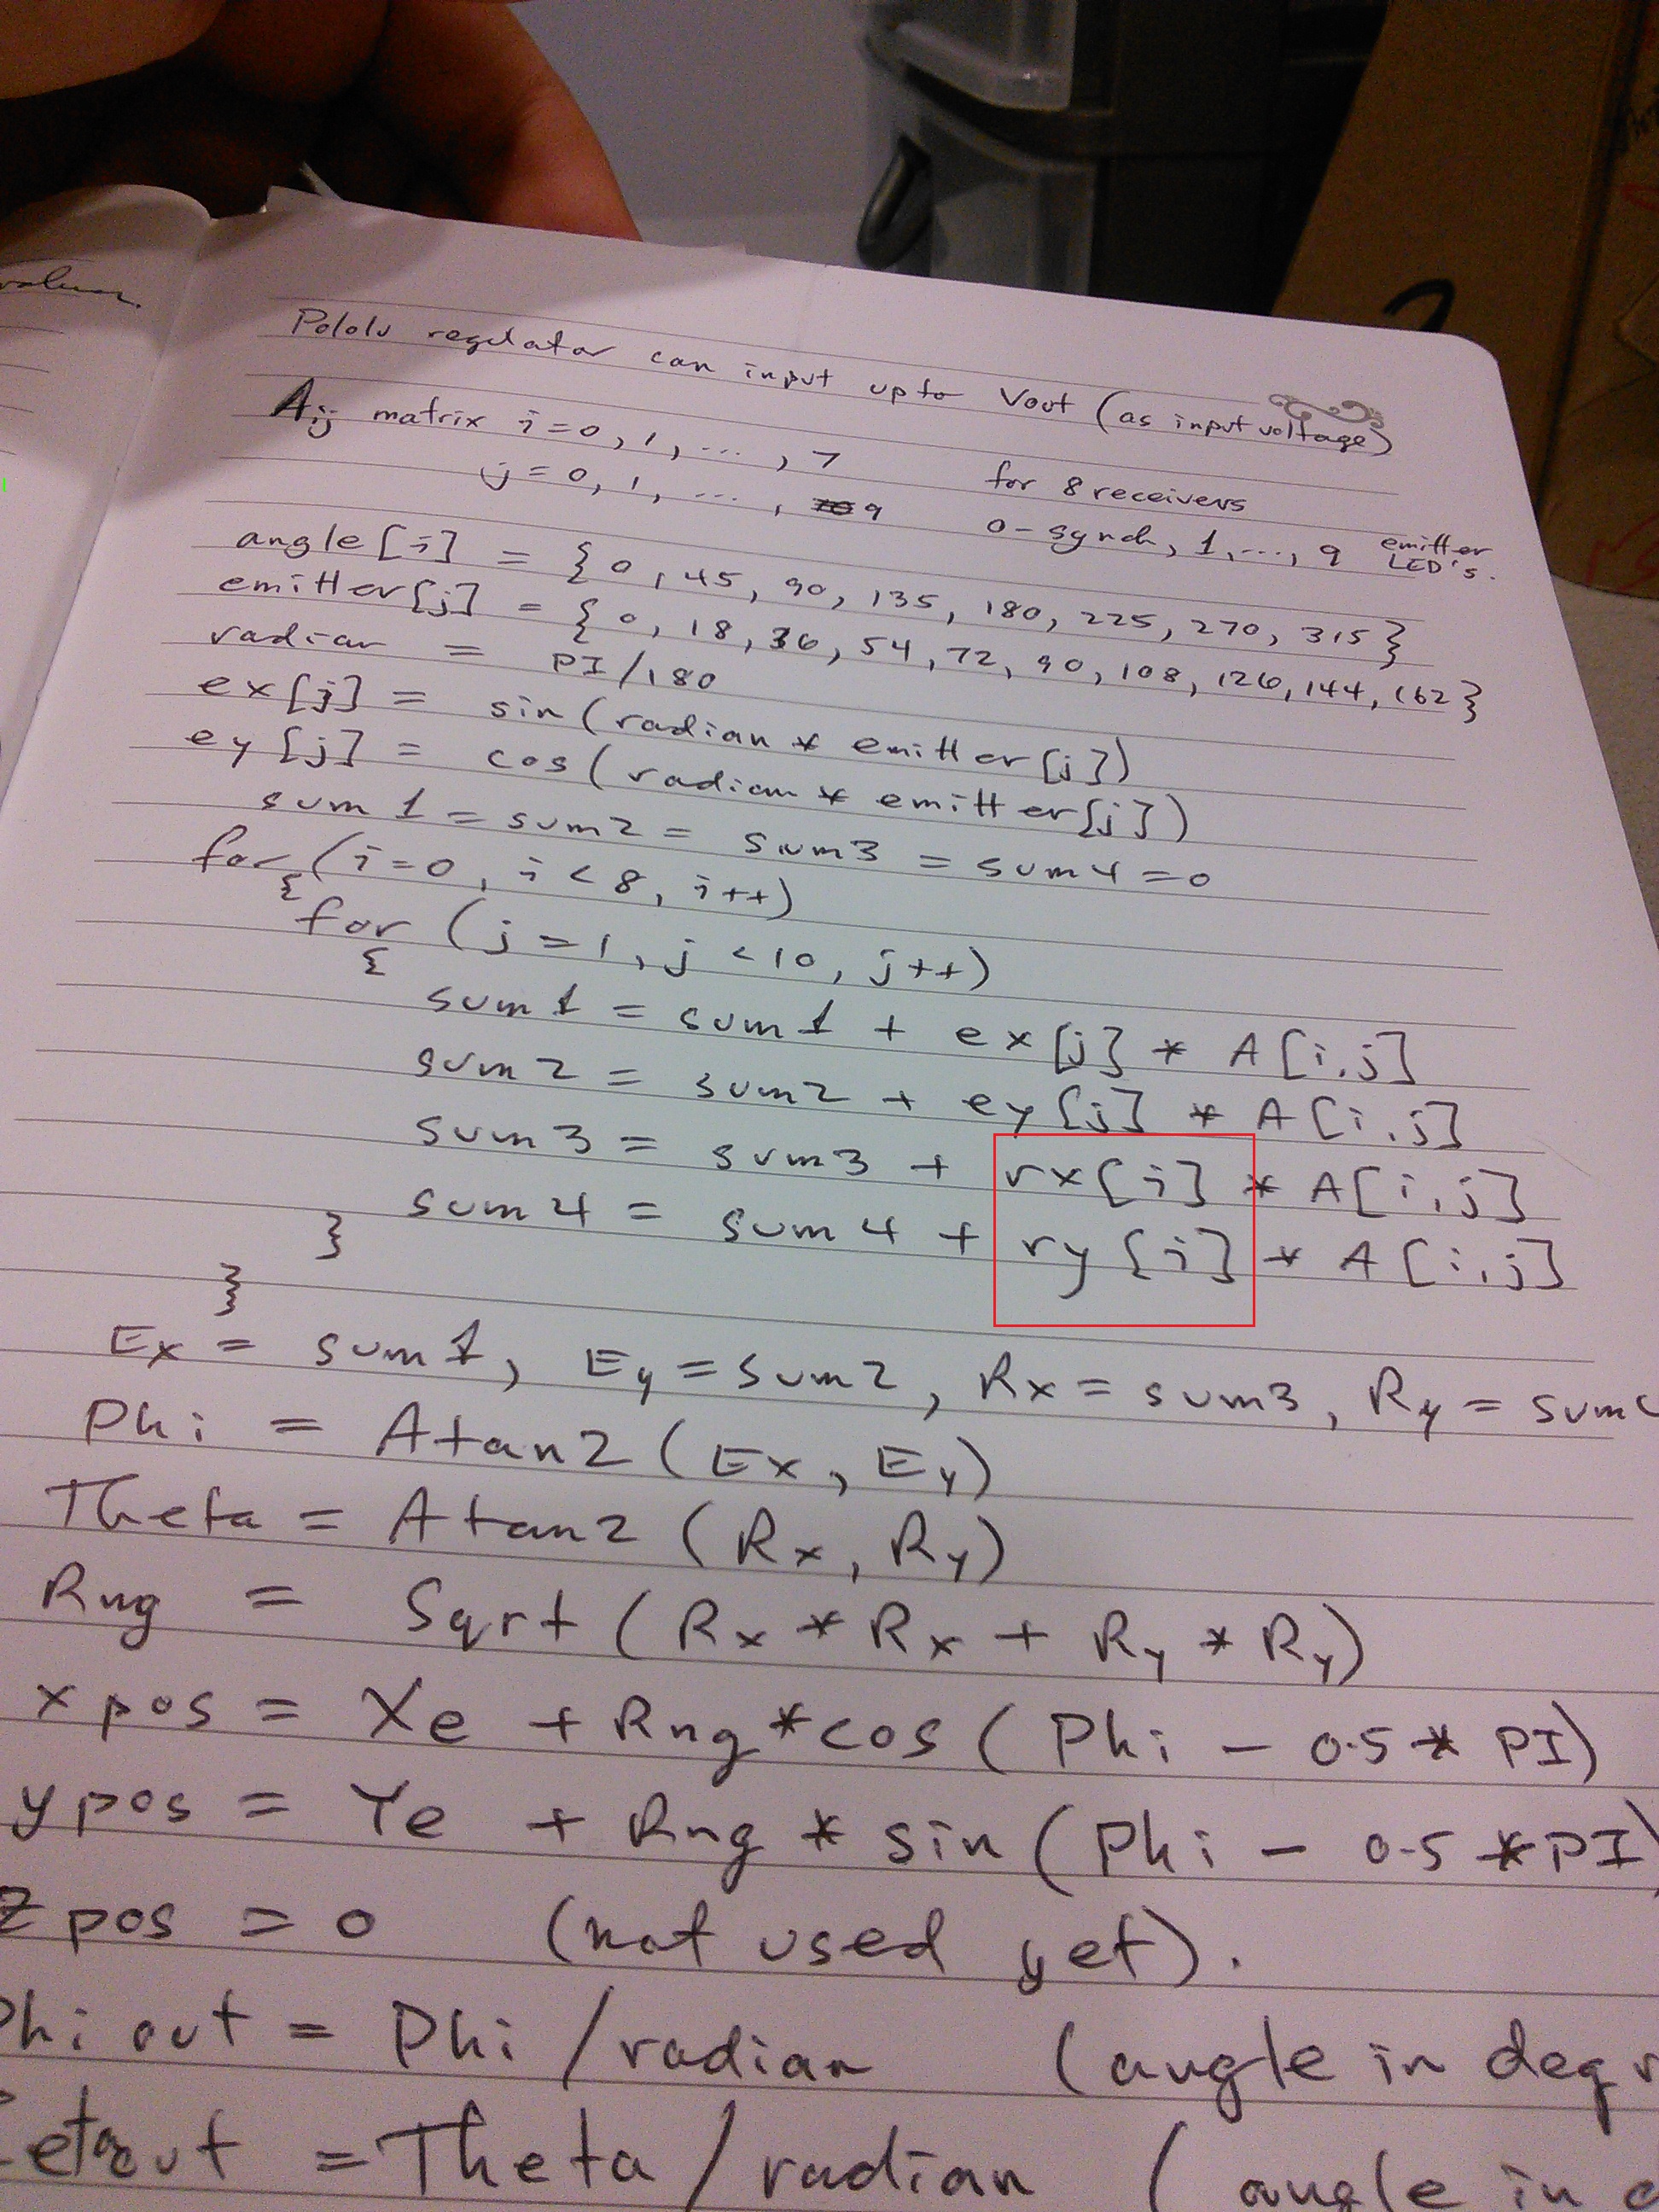 values.
Pololu regulator can input up to Vout (as input voltage)
Aij matrix i=0, 1, ..., 7 for 8 receivers
j=0, 1, ..., 9 0-synch, 1, ..., 9 emitter LED's.
angle[i] = {0, 45, 90, 135, 180, 225, 270, 315}
emitter[j] = {0, 18, 36, 54, 72, 90, 108, 126, 144, 162}
radian = PI/180
ex[j] = sin(radian * emitter[j])
ey[j] = cos(radian * emitter[j])
sum1 = sum2 = sum3 = sum4 = 0
for (i=0, i<8, i++)
{
for (j=1, j<10, j++)
{
sum1 = sum1 + ex[j] * A[i,j]
sum2 = sum2 + ey[j] * A[i,j]
sum3 = sum3 + rx[i] * A[i,j]
sum4 = sum4 + ry[i] * A[i,j]
}
}
Ex = sum1, Ey = sum2, Rx = sum3, Ry = sum
Phi = Atan2(Ex, Ey)
Theta = Atan2(Rx, Ry)
Rng = Sqrt(Rx*Rx + Ry*Ry)
xpos = Xe + Rng*cos(Phi - 0.5*PI)
ypos = Ye + Rng*sin(Phi - 0.5*PI)
zpos = 0 (not used yet).
Phi out = Phi/radian (angle in degr
etaout = Theta/radian (angle in